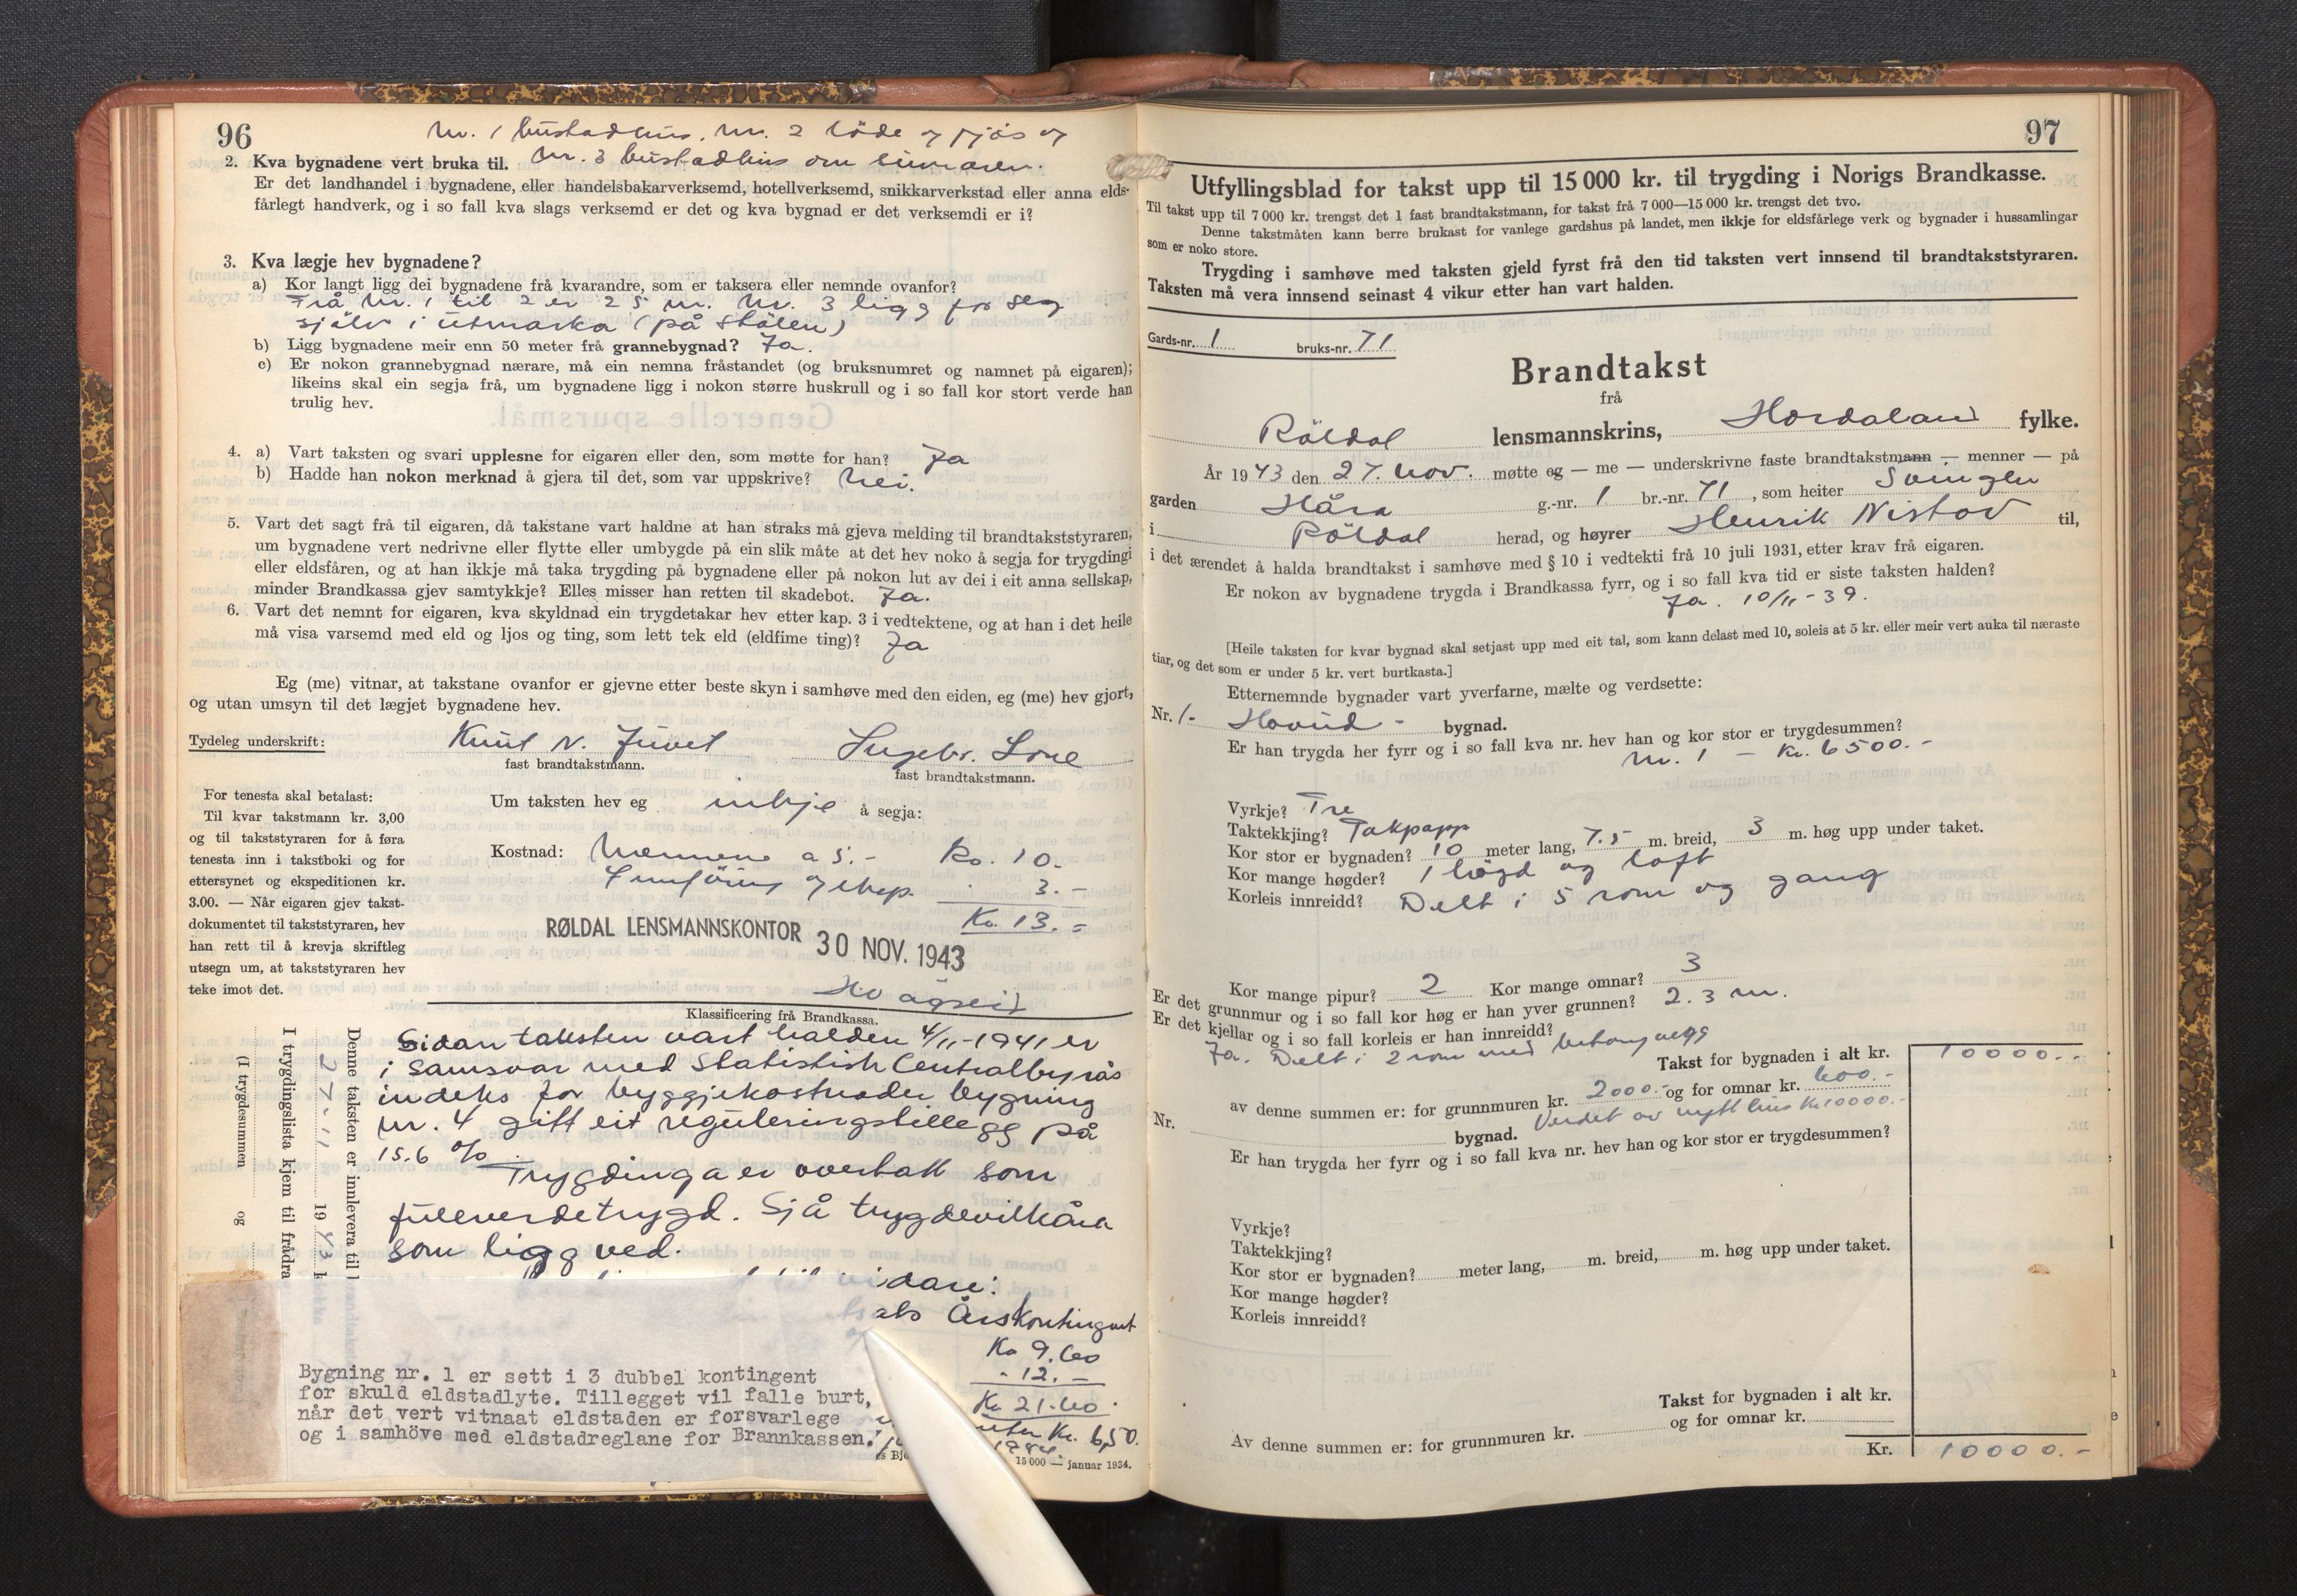 96
Nr. 1 bustadhus, Nr. 2 löde og fjös og
2. Kva bygnadene vert bruka til. Nr. 3 bustadhus om sumaren.
Er det landhandel i bygnadene, eller handelsbakarverksemd, hotellverksemd, snikkarverkstad eller anna elds-
fårlegt handverk, og i so fall kva slags verksemd er det og kva bygnad er det verksemdi er i?
3. Kva lægje hev bygnadene?
a) Kor langt ligg dei bygnadene frå kvarandre, som er taksera eller nemnde ovanfor?
Frå Nr. 1 til 2 er 25 m. Nr. 3 ligg for seg
sjölv i utmarka (på stölen)
b) Ligg bygnadene meir enn 50 meter frå grannebygnad? Ja.
c) Er nokon grannebygnad nærare, må ein nemna fråstandet (og bruksnumret og namnet på eigaren);
likeins skal ein segja frå, um bygnadene ligg i nokon større huskrull og i so fall kor stort verde han
trulig hev.
4. a) Vart taksten og svari upplesne for eigaren eller den, som møtte for han? Ja
b) Hadde han nokon merknad å gjera til det, som var uppskrive? Nei.
5. Vart det sagt frå til eigaren, då takstane vart haldne at han straks må gjeva melding til brandtakststyraren,
um bygnadene vert nedrivne eller flytte eller umbygde på ein slik måte at det hev noko å segja for trygdingi
eller eldsfåren, og at han ikkje må taka trygding på bygnadene eller på nokon lut av dei i eit anna sellskap,
minder Brandkassa gjev samtykkje? Elles misser han retten til skadebot. Ja.
6. Vart det nemnt for eigaren, kva skyldnad ein trygdetakar hev etter kap. 3 i vedtektene, og at han i det heile
må visa varsemd med eld og ljos og ting, som lett tek eld (eldfime ting)? Ja
Eg (me) vitnar, at takstane ovanfor er gjevne etter beste skyn i samhøve med den eiden, eg (me) hev gjort,
og utan umsyn til det lægjet bygnadene hev.
Tydeleg underskrift: Knut N. Juvet
fast brandtakstmann. fast brandtakstmann.
For tenesta skal betalast:
Til kvar takstmann kr. 3,00
og til takststyraren for å føra
tenesta inn i takstboki og for
ettersynet og ekspeditionen kr.
3.00. — Når eigaren gjev takst-
dokumentet til takststyraren, hev
han rett til å krevja skriftleg
utsegn um, at takststyraren hev
teke imot det.
Um taksten hev eg inkje å segja:
Kostnad: Mennene a 5.- Kr. 10.-
Innföring og eksp. 3.-
Kr. 13.=
RØLDAL LENSMANNSKONTOR 30 NOV. 1943
Klassificering frå Brandkassa.
Sidan taksten vart halden 4/11-1941 er
i samsvar med Statistisk Centralbyrås
indeks for byggjekostnader bygning
nr. 4 gitt eit reguleringstillegg på
15.6 %.
Trygdinga er overtatt som
fulverdetrygd. Sjå trygdevilkåra
som ligg ved.
idare:
Årskontingent
Kr 9.60
- 12.-
Kr 21.60
Kr. 6,50.
15 000 — januar 1934.
Denne taksten er innlevera til
27-11 1943
I trygdingslista kjem til frådra
(I trygdesummen og
Bygning nr. 1 er sett i 3 dubbel kontingent
for skuld eldstadlyte. Tillegget vil falle burt,
når det vert vitnaat eldstaden er forsvarlege
og i samhöve med eldstadreglane for Brannkassen.
97
Utfyllingsblad for takst upp til 15 000 kr. til trygding i Norigs Brandkasse.
Til takst upp til 7 000 kr. trengst det 1 fast brandtakstmann, for takst frå 7 000—15 000 kr. trengst det tvo.
Denne takstmåten kann berre brukast for vanlege gardshus på landet, men ikkje for eldsfårlege verk og bygnader i hussamlingar
som er noko store.
Trygding i samhøve med taksten gjeld fyrst frå den tid taksten vert innsend til brandtakststyraren.
Taksten må vera innsend seinast 4 vikur etter han vart halden.
Gards-nr. 1 bruks-nr. 71
Brandtakst
frå
Röldal lensmannskrins, Hordaland fylke.
År 1943 den 27. nov. møtte eg — me — underskrivne faste brandtakstmann — menner — på
garden Håra g.-nr. 1 br.-nr. 71, som heiter Svingen
i Röldal herad, og høyrer Henrik Nistov til,
i det ærendet å halda brandtakst i samhøve med § 10 i vedtekti frå 10 juli 1931, etter krav frå eigaren.
Er nokon av bygnadene trygda i Brandkassa fyrr, og i so fall kva tid er siste taksten halden?
Ja. 10/11-39.
[Heile taksten for kvar bygnad skal setjast upp med eit tal, som kann delast med 10, soleis at 5 kr. eller meir vert auka til næraste
tiar, og det som er under 5 kr. vert burtkasta.]
Etternemnde bygnader vart yverfarne, mælte og verdsette:
Nr. 1- Hovud- bygnad.
Er han trygda her fyrr og i so fall kva nr. hev han og kor stor er trygdesummen?
Nr. 1 - Kr. 6500.-
Vyrkje? Tre
Taktekkjing? Takpapp
Kor stor er bygnaden? 10 meter lang, 7.5 m. breid, 3 m. høg upp under taket.
Kor mange høgder? 1 högd og loft
Korleis innreidd? Delt i 5 rom og gang
Kor mange pipur? 2 Kor mange omnar? 3
Er det grunnmur og i so fall kor høg er han yver grunnen? 2.3 m.
Er det kjellar og i so fall korleis er han innreidd?
Ja. Delt i 2 rom med betongvegg
Takst for bygnaden i alt kr. 10000.-
av denne summen er: for grunnmuren kr. 2000.- og for omnar kr. 600.-
Verdet av nytt hus Kr 10000.-
Nr. bygnad.
Er han trygda her fyrr og i so fall kva nr. hev han og kor stor er trygdesummen?
Vyrkje?
Taktekkjing?
Kor stor er bygnaden? meter lang, m. breid, m. høg upp under taket.
Kor mange høgder?
Korleis innreidd?
Takst for bygnaden i alt kr.
Av denne summen er: for grunnmuren kr. og for omnar kr.
Kr. 10000.-